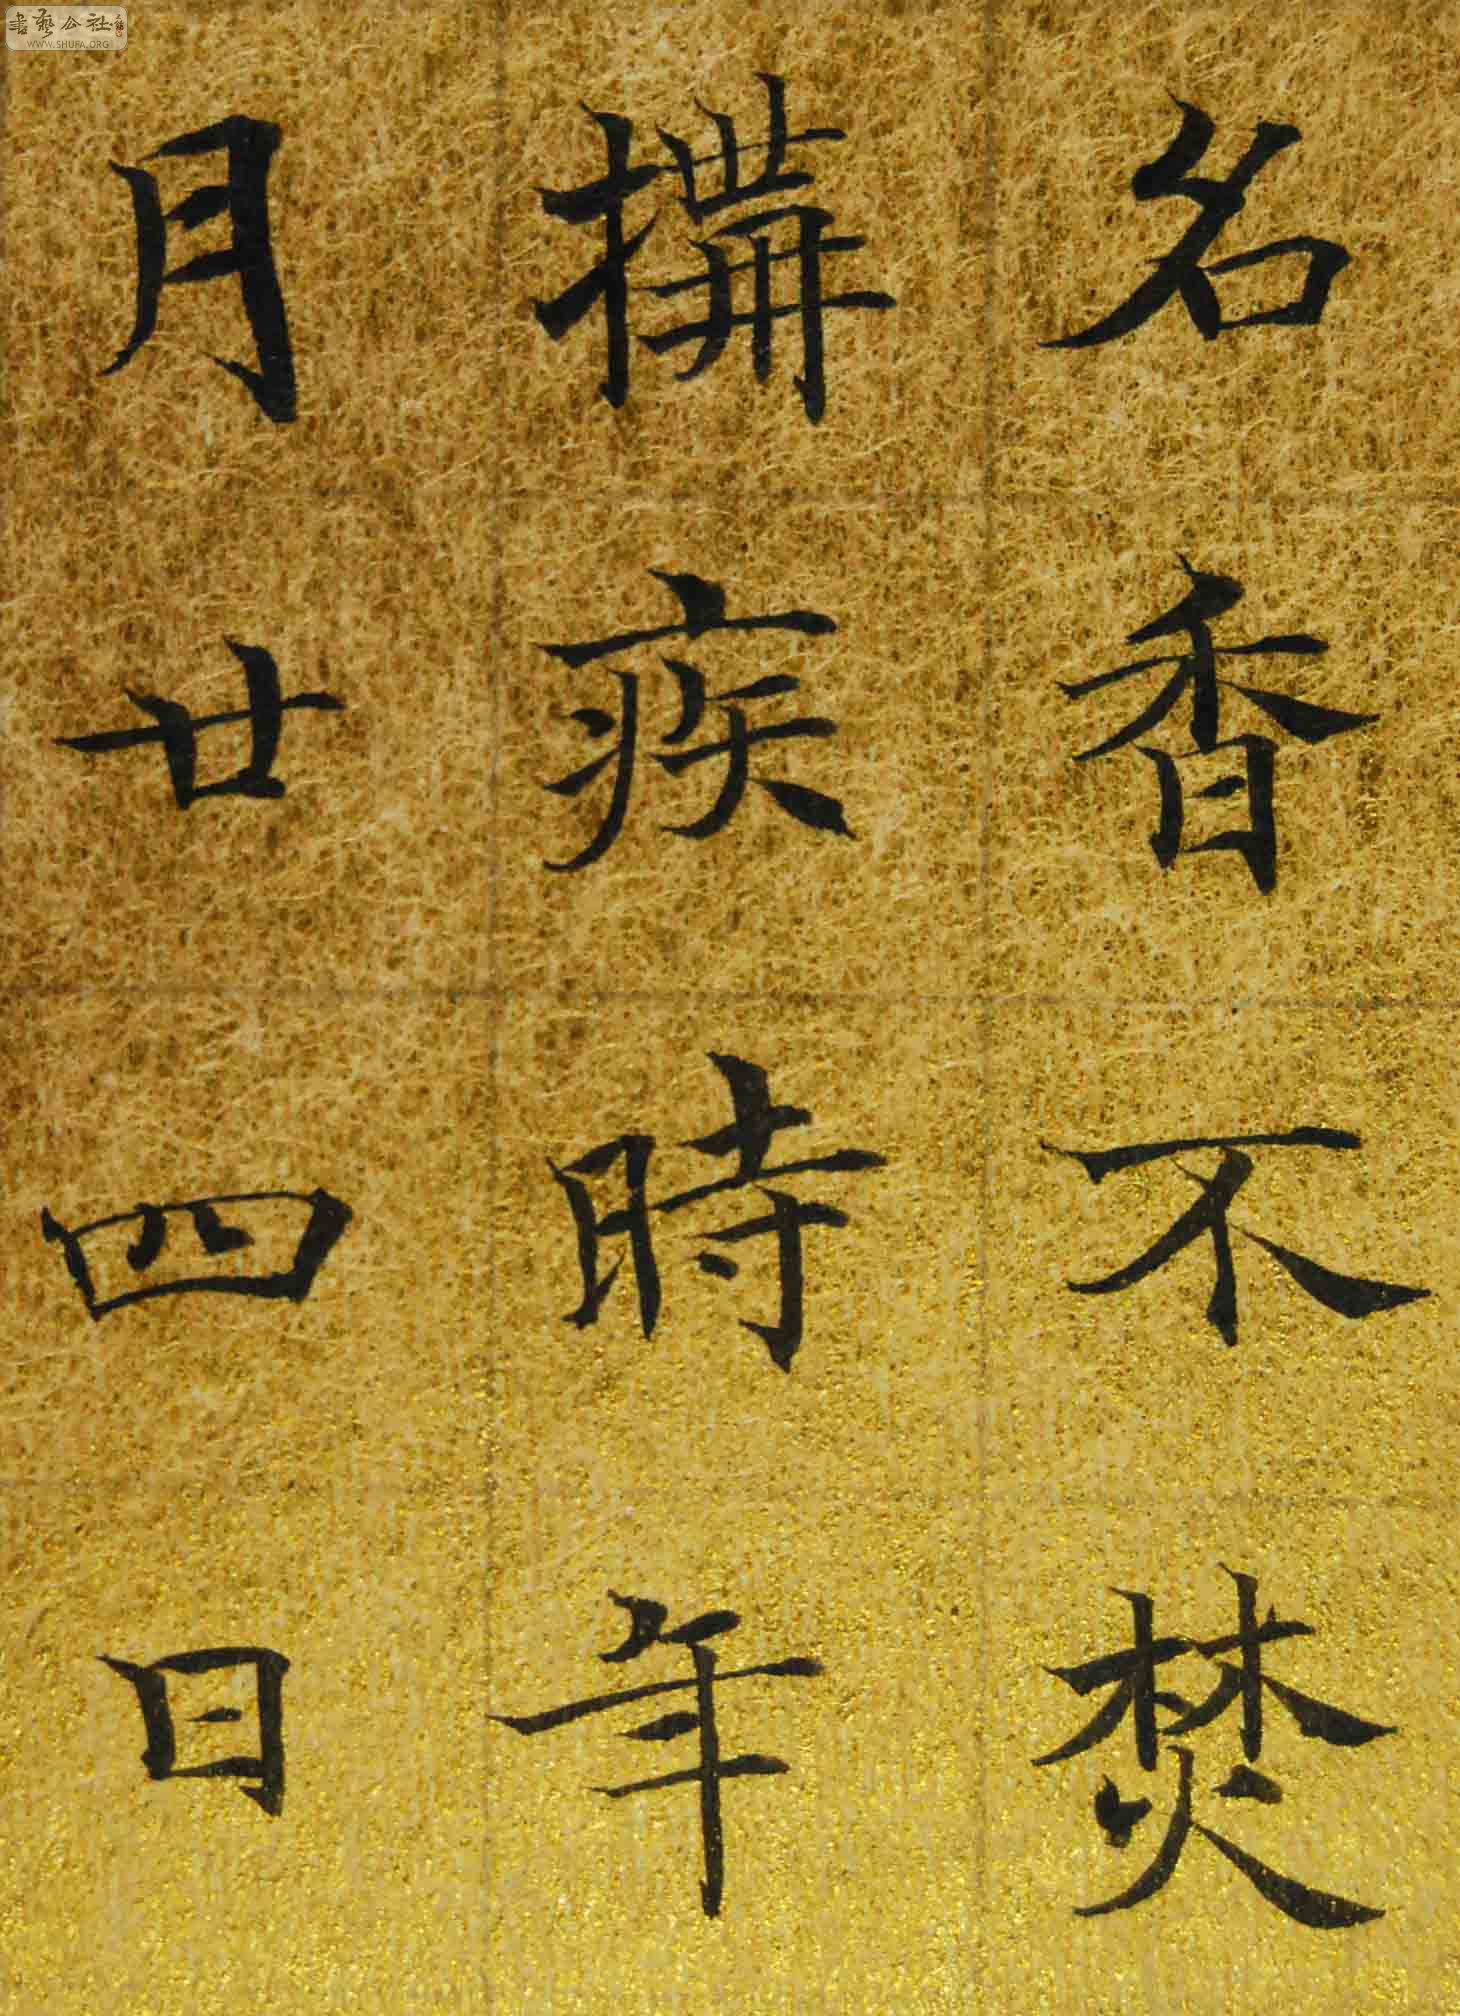 名香不焚
搆疾時年
月廿四日
書藝公社
WWW.SHUFA.ORG